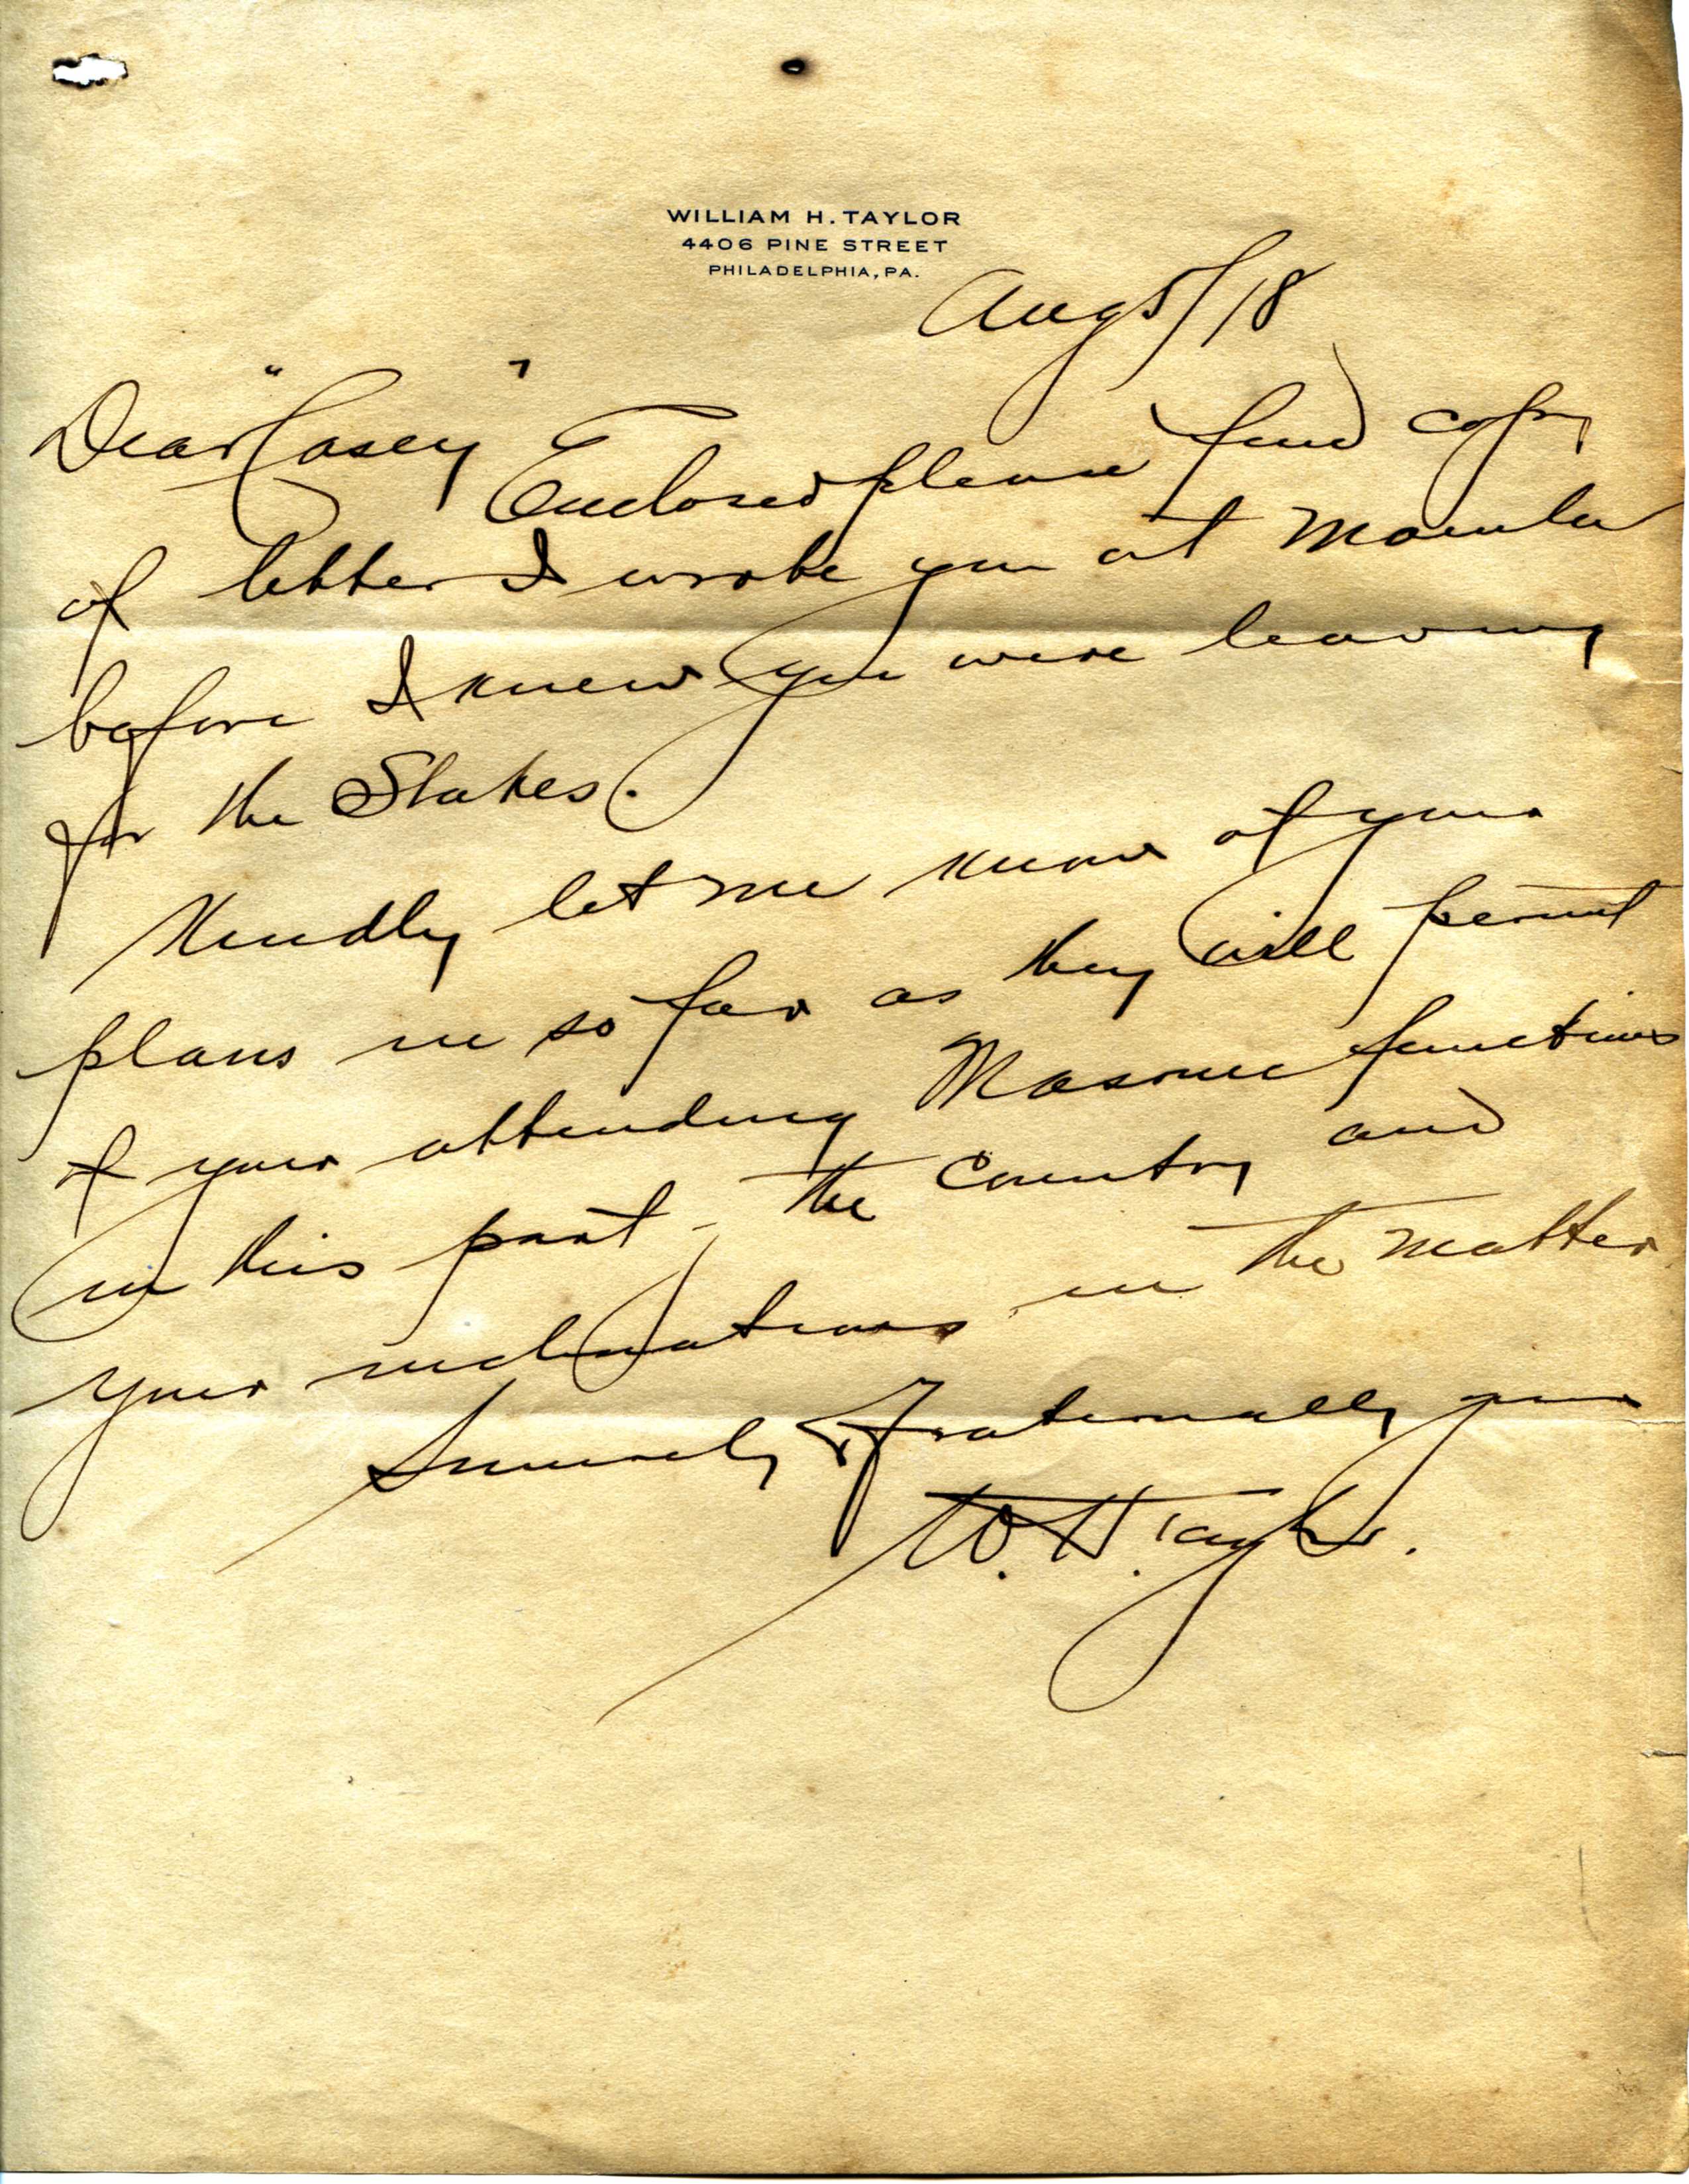 WILLIAM H. TAYLOR
4406 PINE STREET
PHILADELPHIA, PA.
Aug 5/18
Dear "Casey"
Enclosed please find copy
of letter I wrote you at Manila
before I knew you were leaving
for the States.
Kindly let me know of your
plans in so far as they will permit
of your attending Masonic functions
in this part - the Country and
your inclinations in the matter
Sincerely & Fraternally yours
W. H. Taylor.